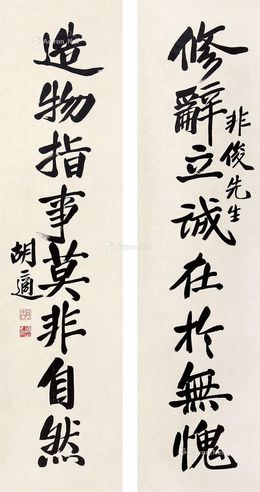 修辭立誠在於無愧
非俊先生
造物指事莫非自然
胡適